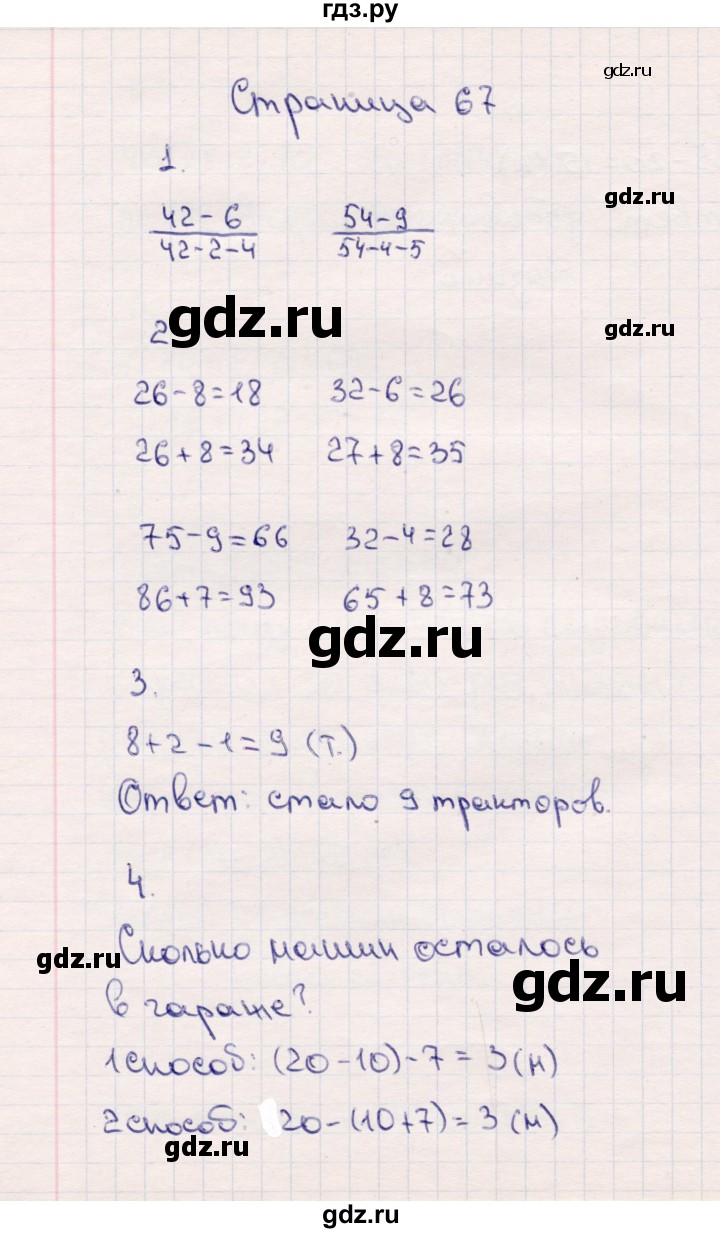 гдз.ру
gdz.ru
Страница 67
1.
gdz.ru
42-6    54-9
42-2-4    54-4-5
gdz.ru
2
gdz.ru
26-8=18    32-6=26
26+8=34    27+8=35
75-9=66    32-4=28
86+7=93    65+8=73
gdz.ru
3.
8+2-1=9 (т.)
Ответ: стало 9 тракторов.
4.
Сколько машин осталось
gdz.ru
gdz.ru
в гараже?
1 способ: (20-10)-7=3(м)
2 способ: 20-(10+7)=3(м)
gdz.ru
gdz.ru